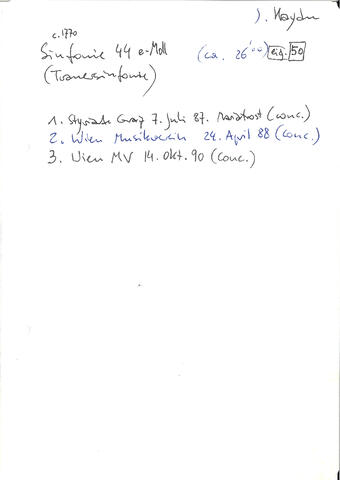 J. Haydn
c. 1770
Sinfonie 44 e-Moll (ca. 26'00) eig. 50
(Trauersinfonie)
1. Styriarte Graz 7. Juli 87. (conc.)
2. Wien Musikverein 24. April 88 (conc.)
3. Wien MV 14. Okt. 90 (conc.)